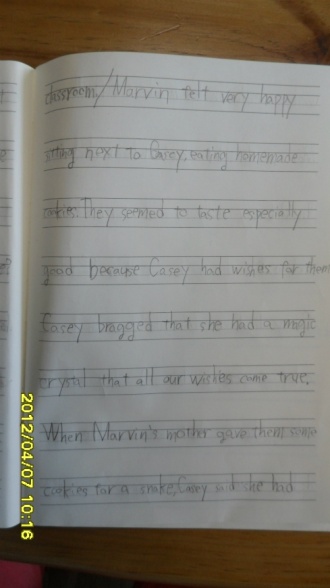 classroom/Marvin felt very happy
sitting next to Casey, eating homemade
cookies. They seemed to taste especially
good because Casey had wishes for them
Casey bragged that she had a magic
crystal that all our wishes come true.
When Marvin's mother gave them some
cookies for a snake, Casey said she had
2012/04/07 10:16